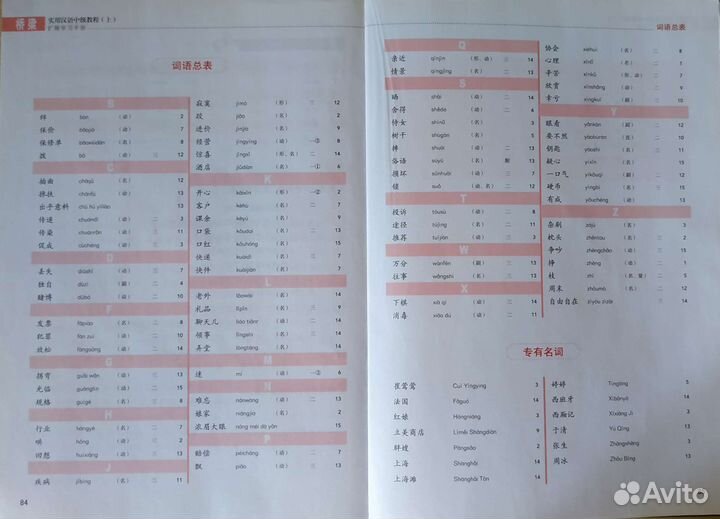 桥梁
实用汉语中级教程（上）
词语总表
B
绊 bàn （动） 2
保价 bǎojià （动） 7
保修单 bǎoxiūdān （名） 8
拨 bō （动） 三 12
C
插曲 chāqǔ （名） 12
搀扶 chānfú （动） 13
出乎意料 chū hū yìliào 13
传递 chuándì （动） 二 8
传染 chuánrǎn （动） 三 11
促成 cùchéng （动） 三 3
D
丢失 diūshī （动） 三 7
独自 dúzì （副） 二 4
赌博 dǔbó （动） 二 10
F
发票 fāpiào （名） 二 8
犯罪 fàn zuì （动） 二 10
放松 fàngsōng （动） 二 14
G
拐弯 guǎi wān （动） 三 13
光临 guānglín （动） 二 15
规格 guīgé （名） 三 8
H
行业 hángyè （名） 二 7
哄 hǒng （动） 2
回想 huíxiǎng （动） 三 13
J
疾病 jíbìng （名） 二 11
寂寞 jìmò （形） 三 12
跤 jiāo （名） 2
进价 jìnjià （名） 9
经营 jīngyíng （动） 一③ 8
惊喜 jīngxǐ （形、名） 二 14
酒店 jiǔdiàn （名） 一① 6
K
开心 kāixīn （形） 一② 2
客户 kèhù （名） 二 7
课金 kèjīn （名） 9
口袋 kǒudai （名） 二 13
口红 kǒuhóng （名） 15
快递 kuàidì （名） 三 7
快件 kuàijiàn （名） 7
L
老外 lǎowài （名） 14
礼品 lǐpǐn （名） 三 9
聊天儿 liáo tiānr （动） 二 14
领事 lǐngshì （名） 三 14
弄堂 lòngtáng （名） 14
M
迷 mí （动） 一③ 6
N
难忘 nánwàng （动） 二 13
娘家 niángjia （名） 2
浓眉大眼 nóng méi dà yǎn 15
P
赔偿 péicháng （动） 二 7
飘 piāo （动） 三 13
84
词语总表
Q
亲近 qīnjìn （形、动） 三 14
情景 qíngjǐng （名） 二 13
S
晒 shài （动） 二 10
舍得 shěde （动） 二 6
侍女 shìnǚ （名） 3
树干 shùgàn （名） 5
摔 shuāi （动） 二 13
俗语 súyǔ （名） 附 13
损坏 sǔnhuài （动） 三 7
锁 suǒ （动、名） 二 12
T
投诉 tóusù （动） 二 8
途径 tújìng （名） 二 11
推荐 tuījiàn （动） 三 14
W
万分 wànfēn （副） 三 13
往事 wǎngshì （名） 三 13
X
下棋 xià qí （动） 三 14
消毒 xiāo dú （动） 二 11
协会 xiéhuì （名） 二 8
心理 xīnlǐ （名） 二 1
辛苦 xīnkǔ （形、动） 二 7
欣赏 xīnshǎng （动） 二 5
幸亏 xìngkuī （副） 二 11
Y
眼看 yǎnkàn （副） 二 12
要不然 yàoburán （连） 二 11
钥匙 yàoshi （名） 三 12
疑心 yíxīn （名） 11
一口气 yìkǒuqì （副） 二 2
硬币 yìngbì （名） 三 15
有成 yǒuchéng （动） 13
Z
杂剧 zájù （名） 3
枕头 zhěntou （名） 三 1
争吵 zhēngchǎo （动） 三 2
挣 zhèng （动） 二 12
枝 zhī （名、量） 二 5
周末 zhōumò （名） 二 14
自由自在 zìyóu zìzài 三 14
专有名词
崔莺莺 Cuī Yīngyīng 3
法国 Fǎguó 14
红娘 Hóngniáng 3
立美商店 Lìměi Shāngdiàn 9
胖嫂 Pàngsǎo 2
上海 Shànghǎi 14
上海滩 Shànghǎi Tān 14
婷婷 Tíngting 5
西班牙 Xībānyá 14
西厢记 Xīxiāng Jì 3
于清 Yú Qīng 13
张生 Zhāngshēng 3
周冰 Zhōu Bīng 13
Avito